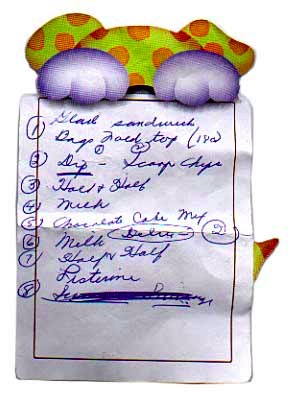 ① Glad sandwich
Bags Fold top (180)
② Dip - Scoop Chips
③ Half & Half
④ Milk
⑤ Chocolate Cake Mix
⑥ Milk ②
⑦ Half & Half
Listerine
⑧